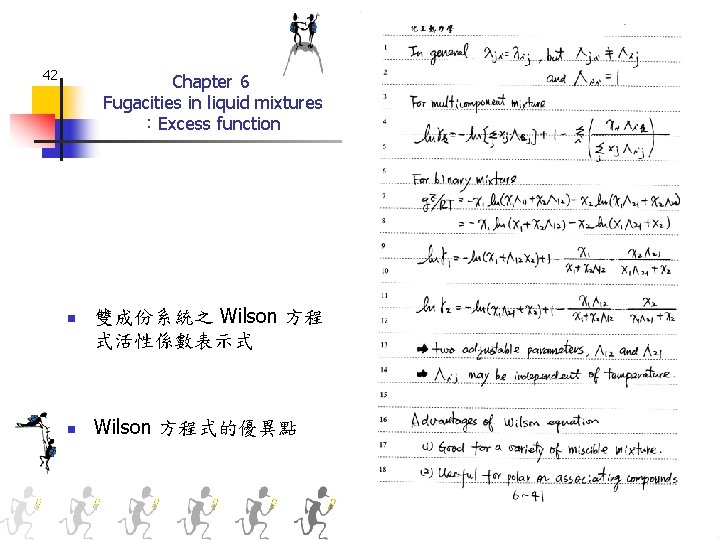 42
Chapter 6
Fugacities in liquid mixtures
：Excess function
雙成份系統之 Wilson 方程
式活性係數表示式
Wilson 方程式的優異點
化工熱力學
1 In general λji = λij, but Λji ≠ Λij
2 and Λii = 1
3 For multicomponent mixture
4 ln γk = -ln[Σj xj Λkj] + 1 - Σi (xi Λik / Σj xj Λij)
5
6 For binary mixture
7 g^E/RT = -x1 ln(x1Λ11 + x2Λ12) - x2 ln(x1Λ21 + x2Λ22)
8 = -x1 ln(x1 + x2Λ12) - x2 ln(x1Λ21 + x2)
9 ln γ1 = -ln(x1 + Λ12x2) + 1 - x1/(x1 + x2Λ12) - x2Λ21/(x1Λ21 + x2)
10
11 ln γ2 = -ln(x1Λ21 + x2) + 1 - x1Λ12/(x1 + x2Λ12) - x2/(x1Λ21 + x2)
12
13 ➡ two adjustable parameters, Λ12 and Λ21
14 ➡ Λij may be independent of temperature.
15
16 Advantages of Wilson equation
17 (1) Good for a variety of miscible mixture.
18 (2) Useful for polar or associating compounds
6-41